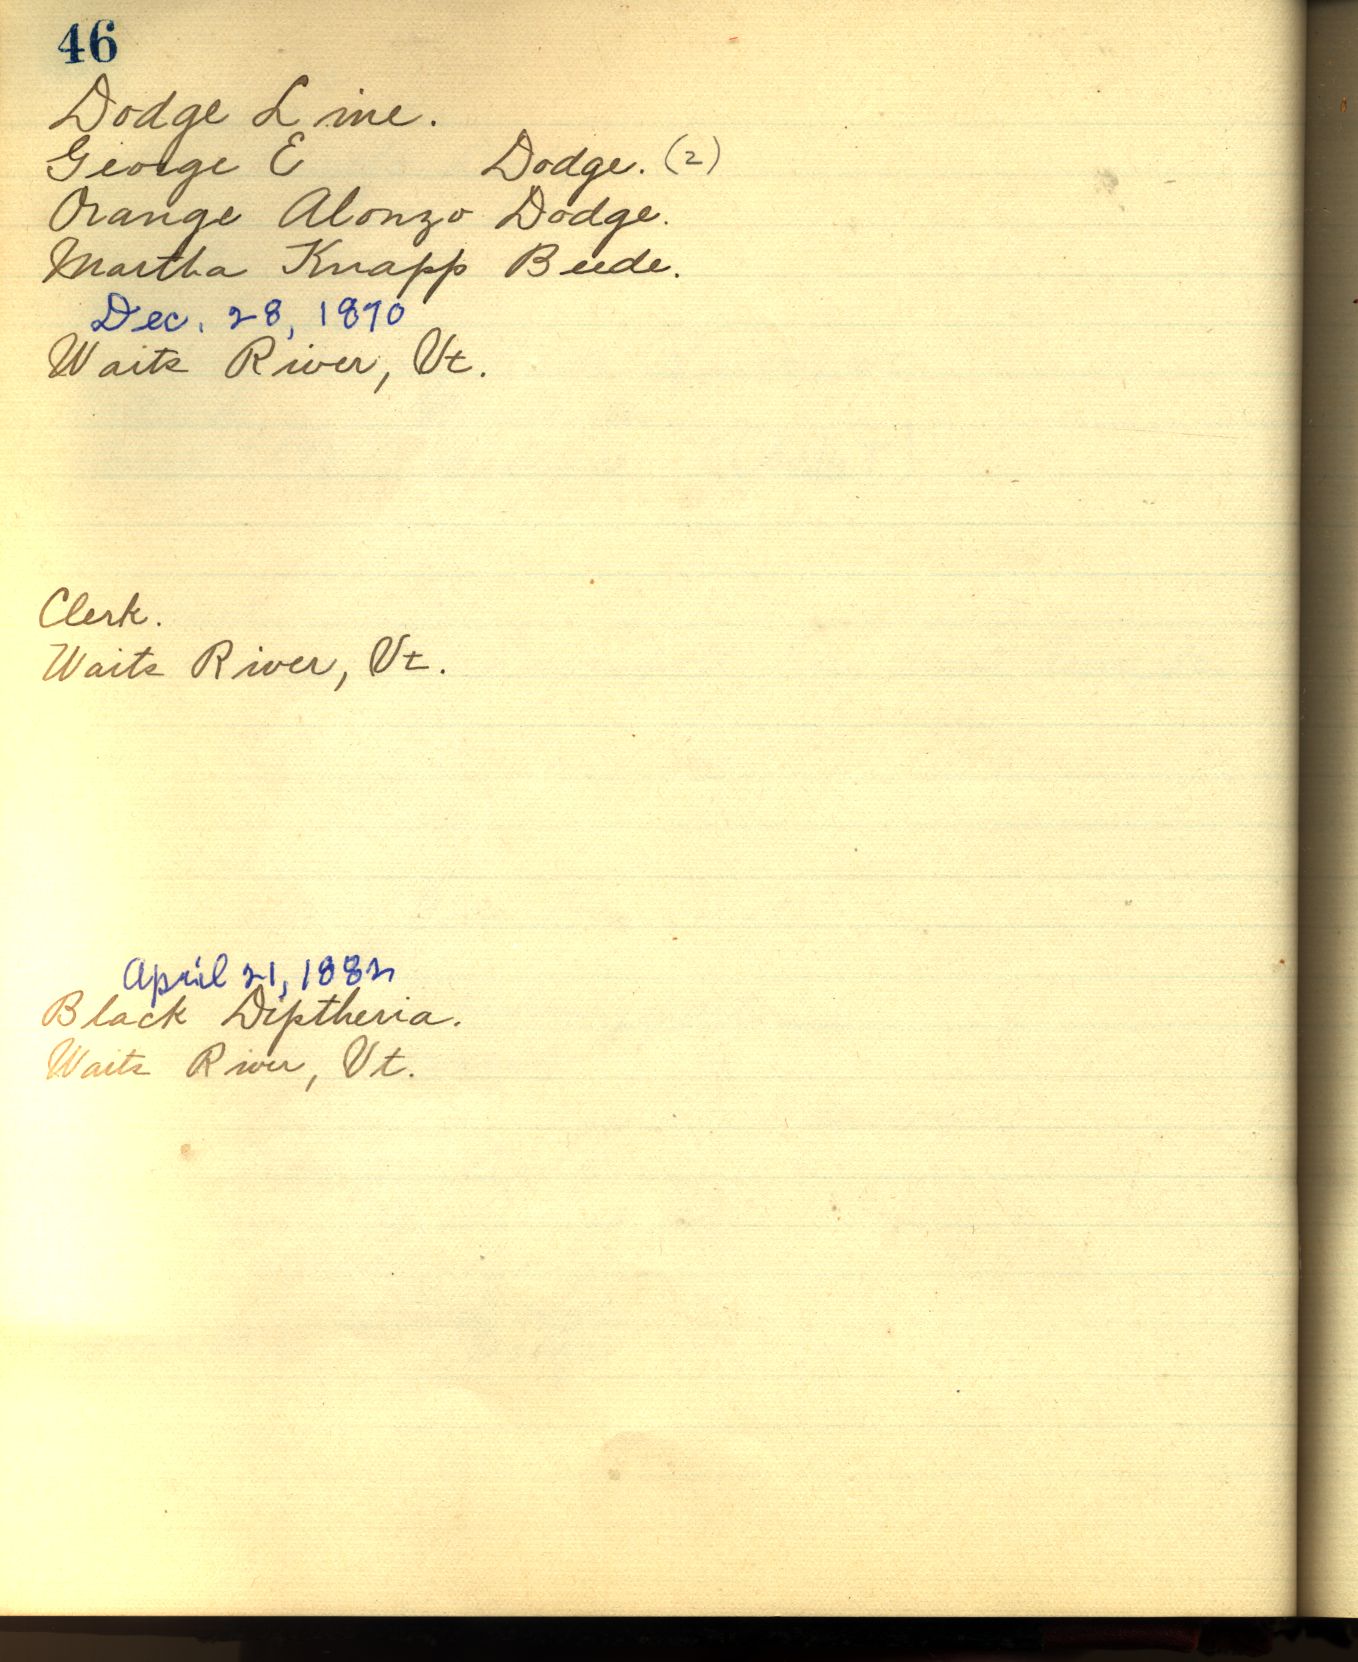 46
Dodge Line.
George E Dodge. (2)
Orange Alonzo Dodge.
Martha Knapp Beede.
Dec. 28, 1870
Waits River, Vt.
Clerk.
Waits River, Vt.
April 21, 1882
Black Diptheria.
Waits River, Vt.